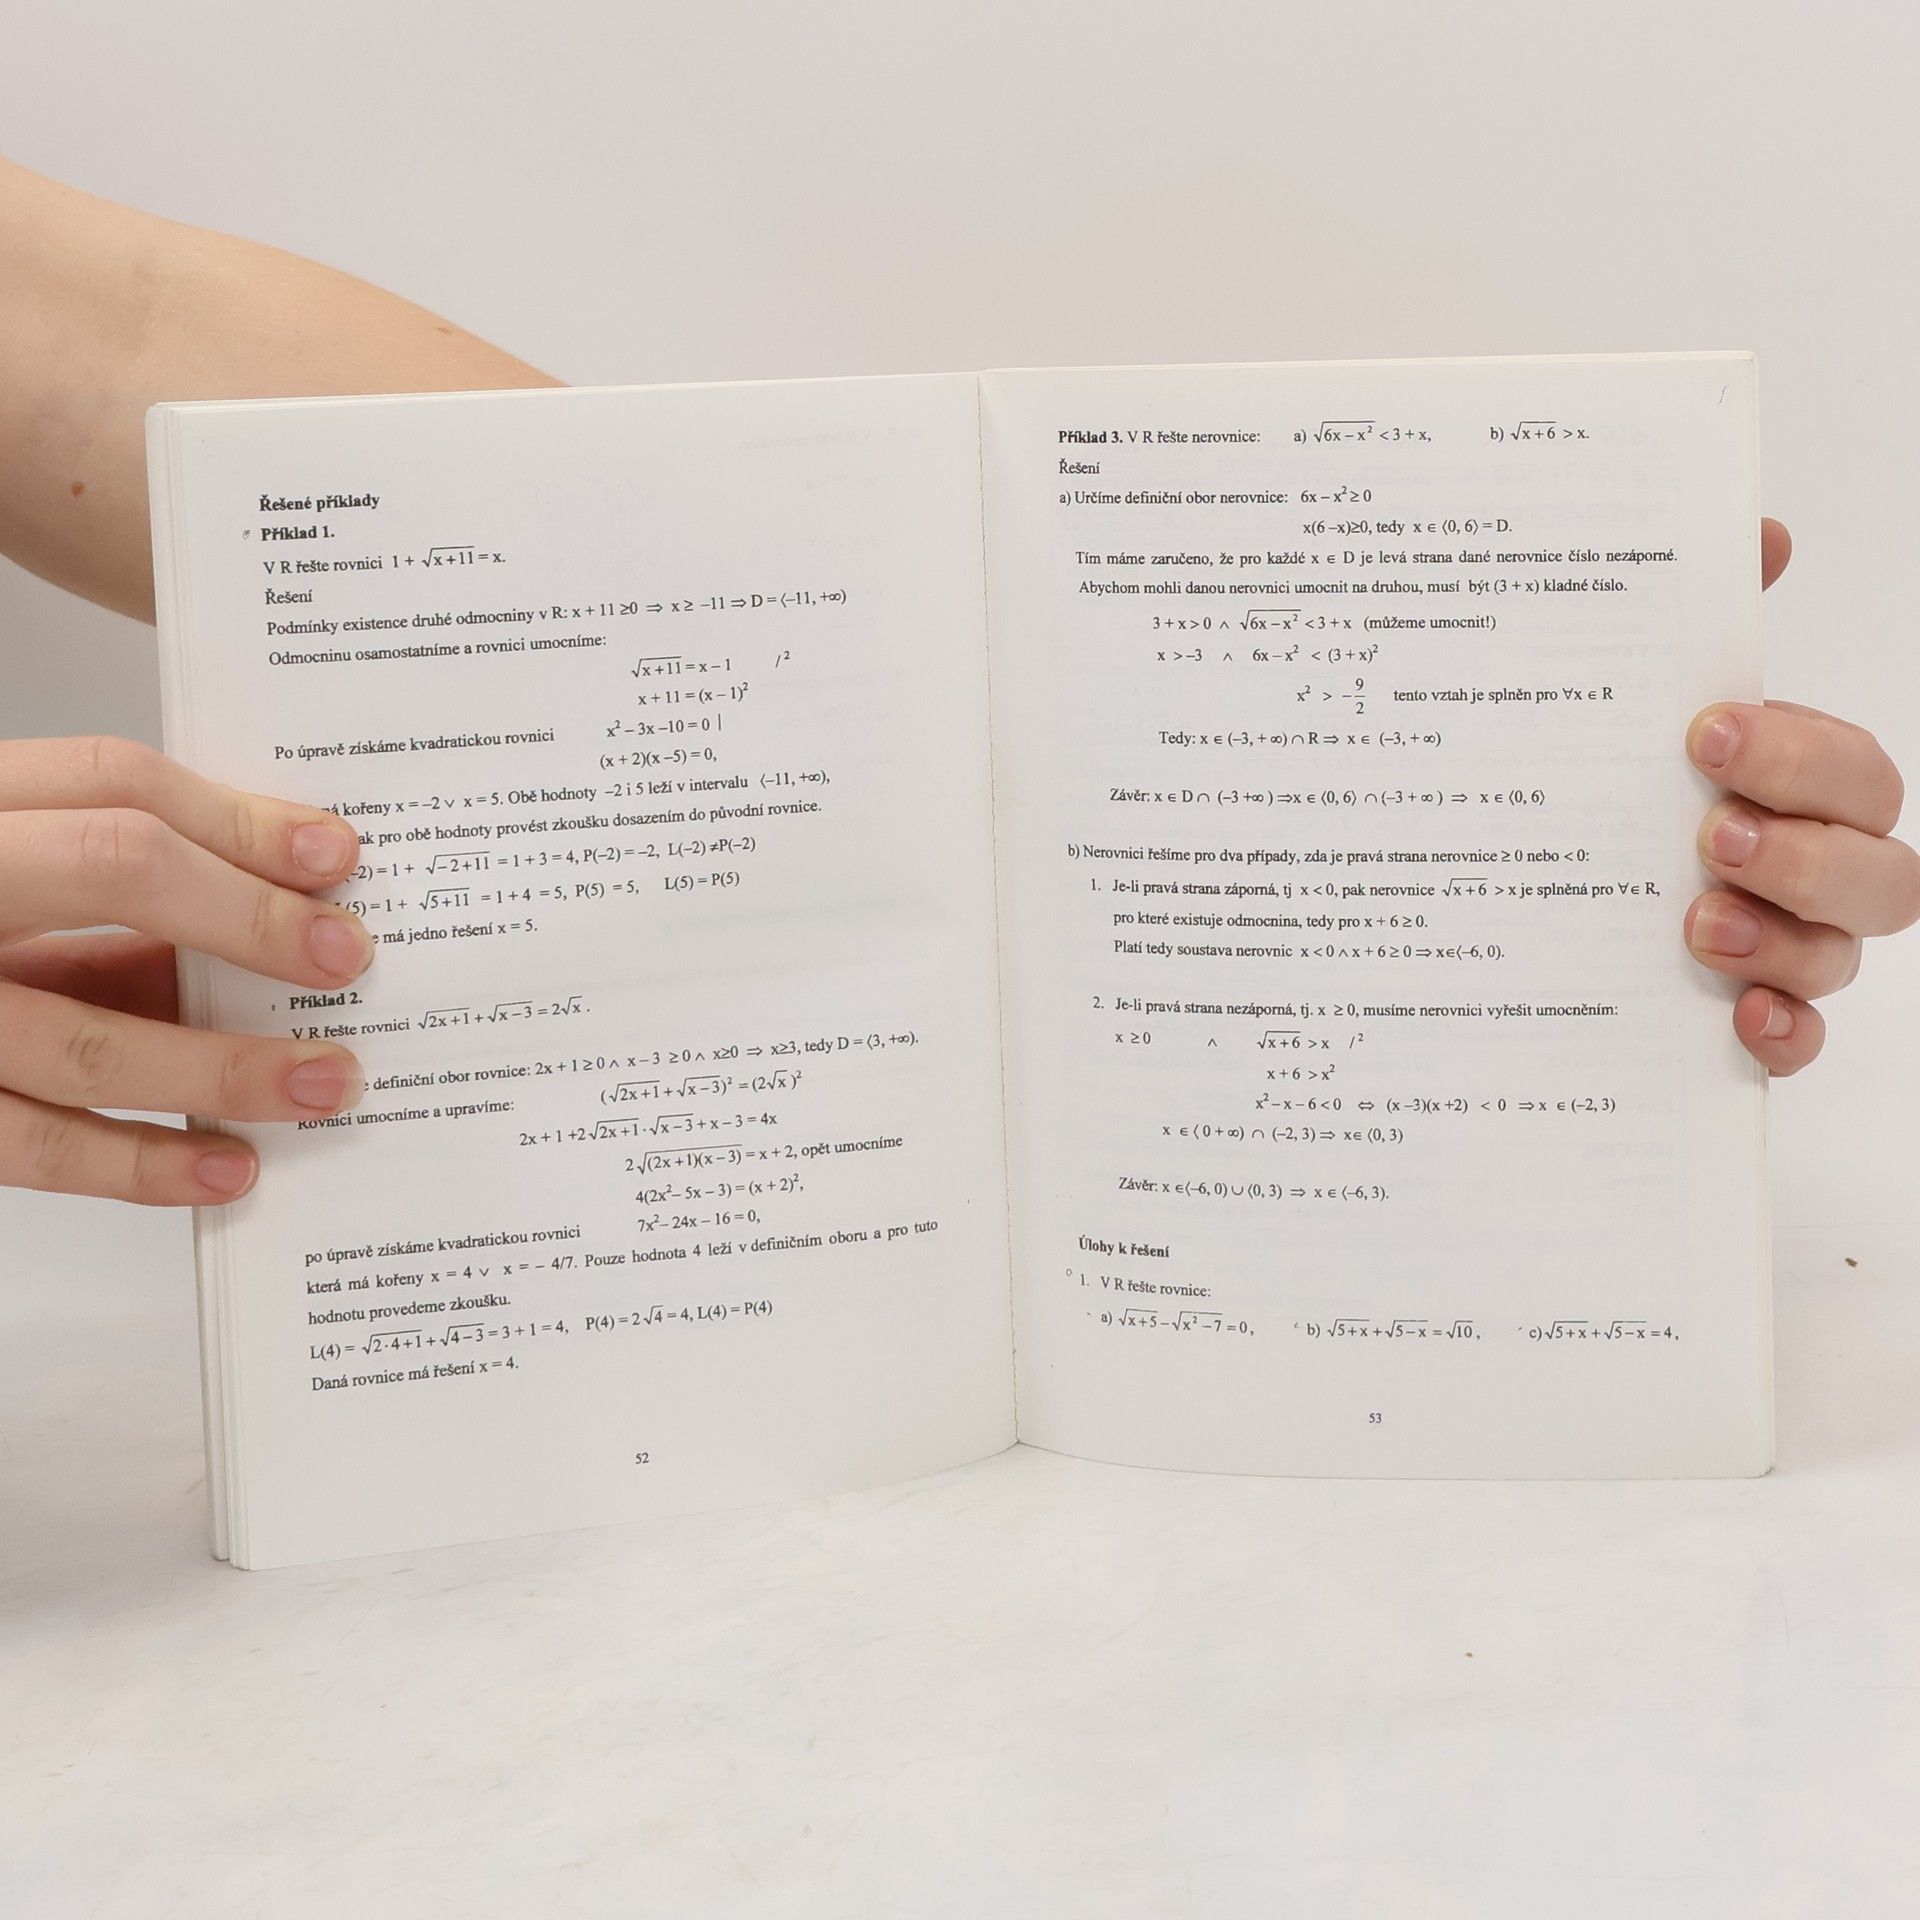 Řešené příklady
Příklad 1.
V R řešte rovnici 1 + √(x+11) = x.
Řešení
Podmínky existence druhé odmocniny v R: x + 11 ≥0 ⇒ x ≥ −11 ⇒ D = ⟨−11, +∞)
Odmocninu osamostatníme a rovnici umocníme:
√(x+11) = x − 1 /²
x + 11 = (x − 1)²
Po úpravě získáme kvadratickou rovnici x² − 3x −10 = 0 |
(x + 2)(x −5) = 0,
kořeny x = −2 ∨ x = 5. Obě hodnoty −2 i 5 leží v intervalu ⟨−11, +∞),
pro obě hodnoty provést zkoušku dosazením do původní rovnice.
−2) = 1 + √(−2+11) = 1 + 3 = 4, P(−2) = −2, L(−2) ≠P(−2)
(5) = 1 + √(5+11) = 1 + 4 = 5, P(5) = 5, L(5) = P(5)
má jedno řešení x = 5.
Příklad 2.
V R řešte rovnici √(2x+1) + √(x−3) = 2√x .
definiční obor rovnice: 2x + 1 ≥ 0 ∧ x − 3 ≥ 0 ∧ x≥0 ⇒ x≥3, tedy D = ⟨3, +∞).
Rovnici umocníme a upravíme: (√(2x+1) + √(x−3))² = (2√x )²
2x + 1 +2√(2x+1)·√(x−3) + x − 3 = 4x
2√((2x+1)(x−3)) = x + 2, opět umocníme
4(2x²− 5x − 3) = (x + 2)²,
po úpravě získáme kvadratickou rovnici 7x²− 24x − 16 = 0,
která má kořeny x = 4 ∨ x = − 4/7. Pouze hodnota 4 leží v definičním oboru a pro tuto
hodnotu provedeme zkoušku.
L(4) = √(2·4+1) + √(4−3) = 3 + 1 = 4, P(4) = 2√4 = 4, L(4) = P(4)
Daná rovnice má řešení x = 4.
52
Příklad 3. V R řešte nerovnice: a) √(6x−x²) < 3 + x, b) √(x+6) > x.
Řešení
a) Určíme definiční obor nerovnice: 6x − x² ≥ 0
x(6 −x)≥0, tedy x ∈ ⟨0, 6⟩ = D.
Tím máme zaručeno, že pro každé x ∈ D je levá strana dané nerovnice číslo nezáporné.
Abychom mohli danou nerovnici umocnit na druhou, musí být (3 + x) kladné číslo.
3 + x > 0 ∧ √(6x−x²) < 3 + x (můžeme umocnit!)
x > −3 ∧ 6x − x² < (3 + x)²
x² > −9/2 tento vztah je splněn pro ∀x ∈ R
Tedy: x ∈ (−3, + ∞) ∩ R ⇒ x ∈ (−3, + ∞)
Závěr: x ∈ D ∩ (−3 +∞ ) ⇒x ∈ ⟨0, 6⟩ ∩ (−3 + ∞ ) ⇒ x ∈ ⟨0, 6⟩
b) Nerovnici řešíme pro dva případy, zda je pravá strana nerovnice ≥ 0 nebo < 0:
1. Je-li pravá strana záporná, tj x < 0, pak nerovnice √(x+6) > x je splněná pro ∀∈ R,
pro které existuje odmocnina, tedy pro x + 6 ≥ 0.
Platí tedy soustava nerovnic x < 0 ∧ x + 6 ≥ 0 ⇒ x∈⟨−6, 0).
2. Je-li pravá strana nezáporná, tj. x ≥ 0, musíme nerovnici vyřešit umocněním:
x ≥ 0 ∧ √(x+6) > x /²
x + 6 > x²
x² − x − 6 < 0 ⇔ (x −3)(x +2) < 0 ⇒ x ∈ (−2, 3)
x ∈ ⟨ 0 + ∞) ∩ (−2, 3) ⇒ x∈ ⟨0, 3)
Závěr: x ∈⟨−6, 0) ∪ ⟨0, 3) ⇒ x ∈ ⟨−6, 3).
Úlohy k řešení
1. V R řešte rovnice:
a) √(x+5) − √(x²−7) = 0, b) √(5+x) + √(5−x) = √10, c) √(5+x) + √(5−x) = 4,
53